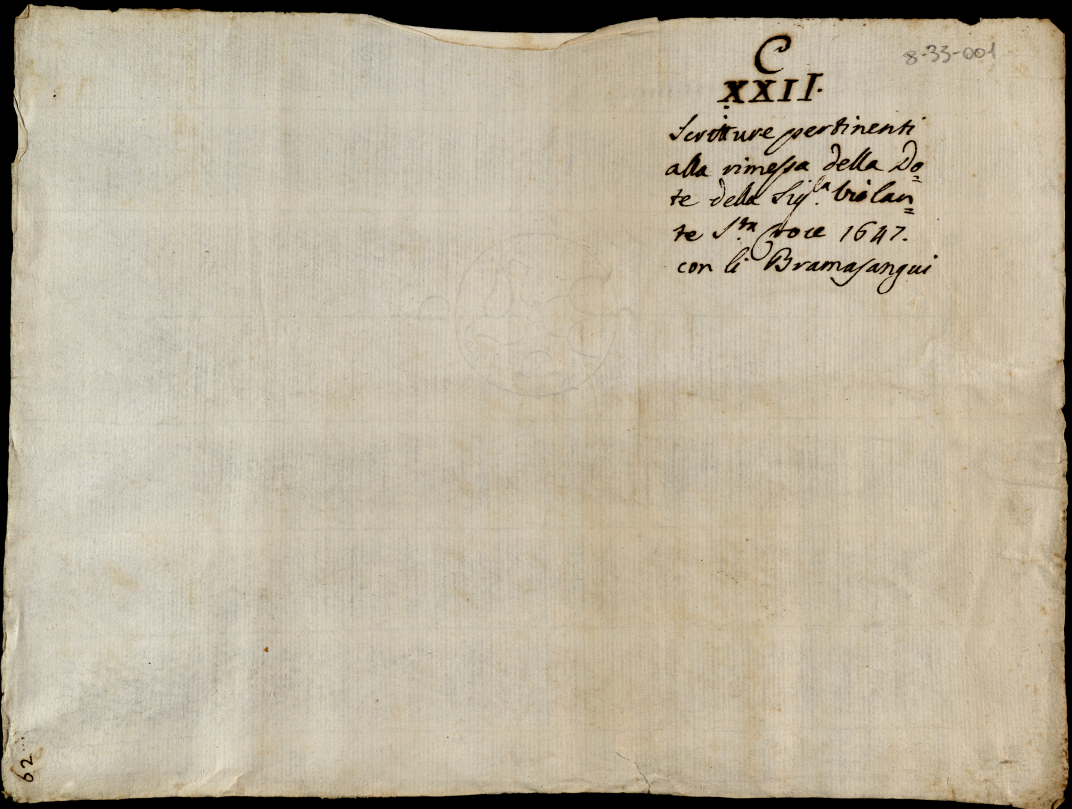 8-33-001
C
XXII.
Scritture pertinenti
alla rimessa della Do=
te della Sig.la Violan=
te S.ta Croce 1647.
con li Bramasangui
62